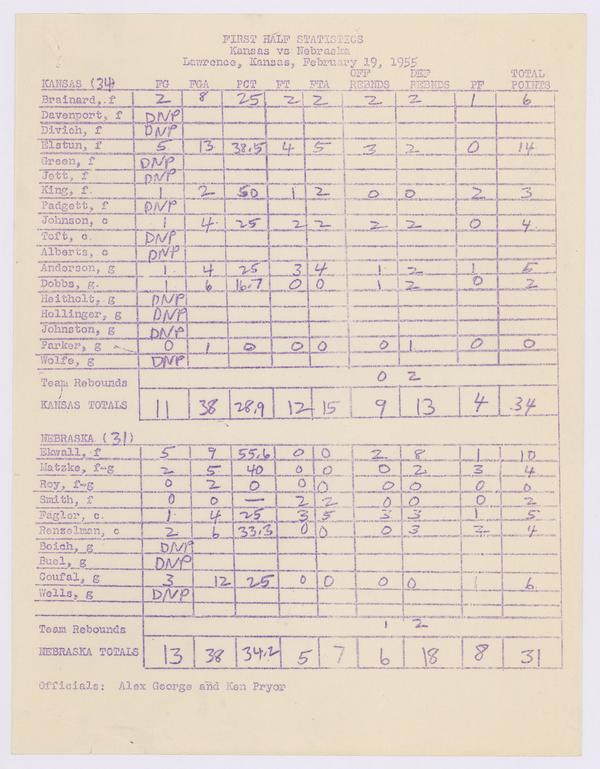 FIRST HALF STATISTICS
Kansas vs Nebraska
Lawrence, Kansas, February 19, 1955
OFF DEF TOTAL
KANSAS (34) FG FGA PCT FT FTA REBNDS REBNDS PF POINTS
Brainard, f 2 8 25 2 2 2 2 1 6
Davenport, f DNP
Divich, f DNP
Elstun, f 5 13 38.5 4 5 3 2 0 14
Green, f DNP
Jett, f DNP
King, f. 1 2 50 1 2 0 0 2 3
Padgett, f DNP
Johnson, c 1 4 25 2 2 2 2 0 4
Toft, c. DNP
Alberts, c DNP
Anderson, g 1 4 25 3 4 1 2 1 5
Dobbs, g. 1 6 16.7 0 0 1 2 0 2
Heitholt, g DNP
Hollinger, g DNP
Johnston, g DNP
Parker, g 0 1 0 0 0 0 1 0 0
Wolfe, g DNP
Team Rebounds 0 2
KANSAS TOTALS 11 38 28.9 12 15 9 13 4 34
NEBRASKA (31)
Ekwall, f 5 9 55.6 0 0 2 8 1 10
Matzke, f-g 2 5 40 0 0 0 2 3 4
Roy, f-g 0 2 0 0 0 0 0 0 0
Smith, f 0 0 — 2 2 0 0 0 2
Fagler, c. 1 4 25 3 5 3 3 1 5
Renzelman, c 2 6 33.3 0 0 0 3 2 4
Boich, g DNP
Buel, g DNP
Coufal, g 3 12 25 0 0 0 0 1 6
Wells, g DNP
Team Rebounds 1 2
NEBRASKA TOTALS 13 38 34.2 5 7 6 18 8 31
Officials: Alex George and Ken Pryor